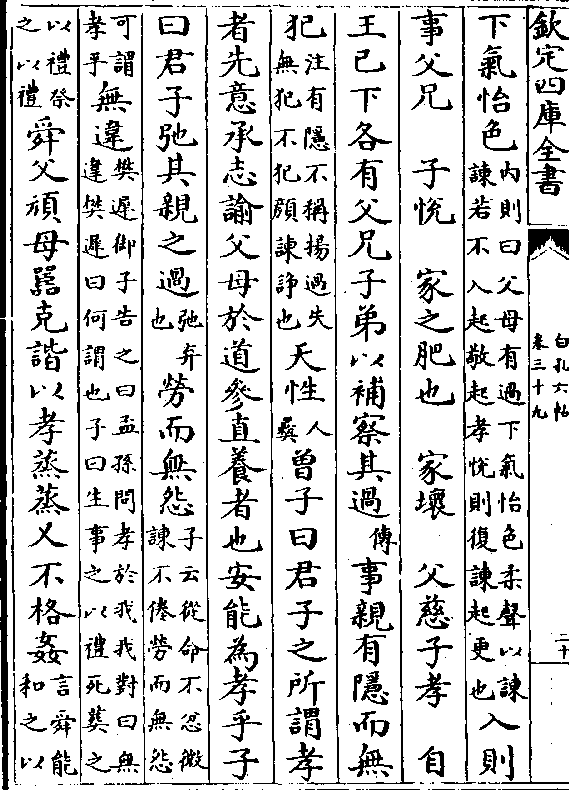 欽定四庫全書
白孔六帖
卷三十九
二十
下氣怡色內則曰父母有過下氣怡色柔聲以諫
諫若不入起敬起孝悅則復諫起更也入則
事父兄　子悅　家之肥也　家壞　父慈子孝　自
王已下各有父兄子弟以補察其過傳事親有隱而無
犯注有隱不稱揚過失
無犯不犯顏諫諍也天性人彝曾子曰君子之所謂孝
者先意承志諭父母於道參直養者也安能為孝乎子
曰君子弛其親之過弛弃
也勞而無怨子云從命不忿微
諫不倦勞而無怨
可謂
孝乎無違樊遲御子告之曰孟孫問孝於我我對曰無
違樊遲曰何謂也子曰生事之以禮死葬之
以禮祭
之以禮舜父頑母嚚克諧以孝蒸蒸乂不格姦言舜能
和之以